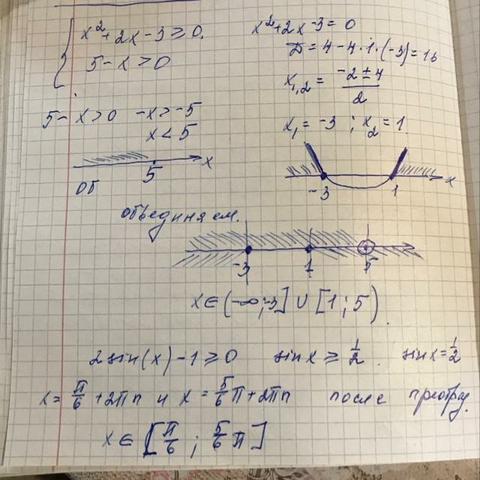 x²+2x-3≥0.
5-x>0
x²+2x-3=0
D=4-4·1·(-3)=16
x₁,₂=(-2±4)/2
x₁=-3 ; x₂=1.
5-x>0 -x>-5
x<5
5 x
ОТ
-3 1 x
объединяем.
-3 1 5
x∈(-∞;-3]∪[1;5)
2sin(x)-1≥0 sinx≥1/2. sinx=1/2
x=π/6+2πn и x=5/6π+2πn после преобраз.
x∈[π/6 ; 5/6π]